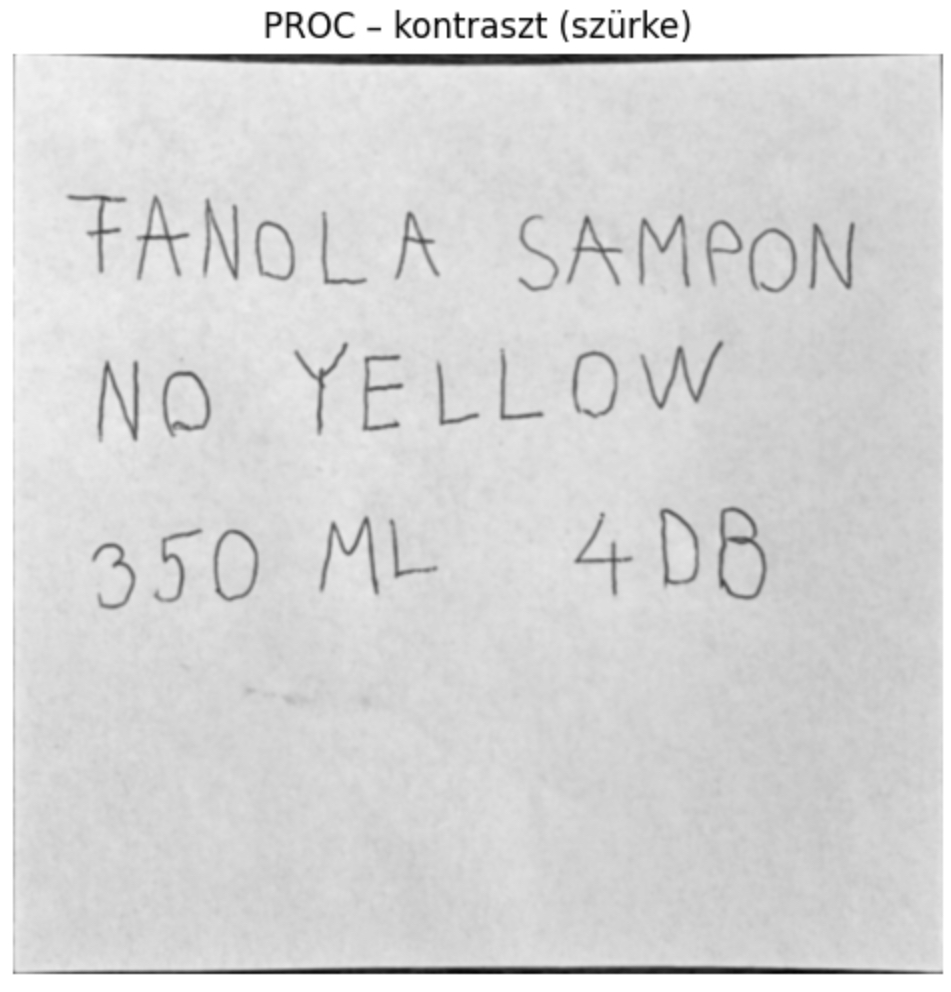 PROC – kontraszt (szürke)
FANOLA SAMPON
NO YELLOW
350 ML 4DB